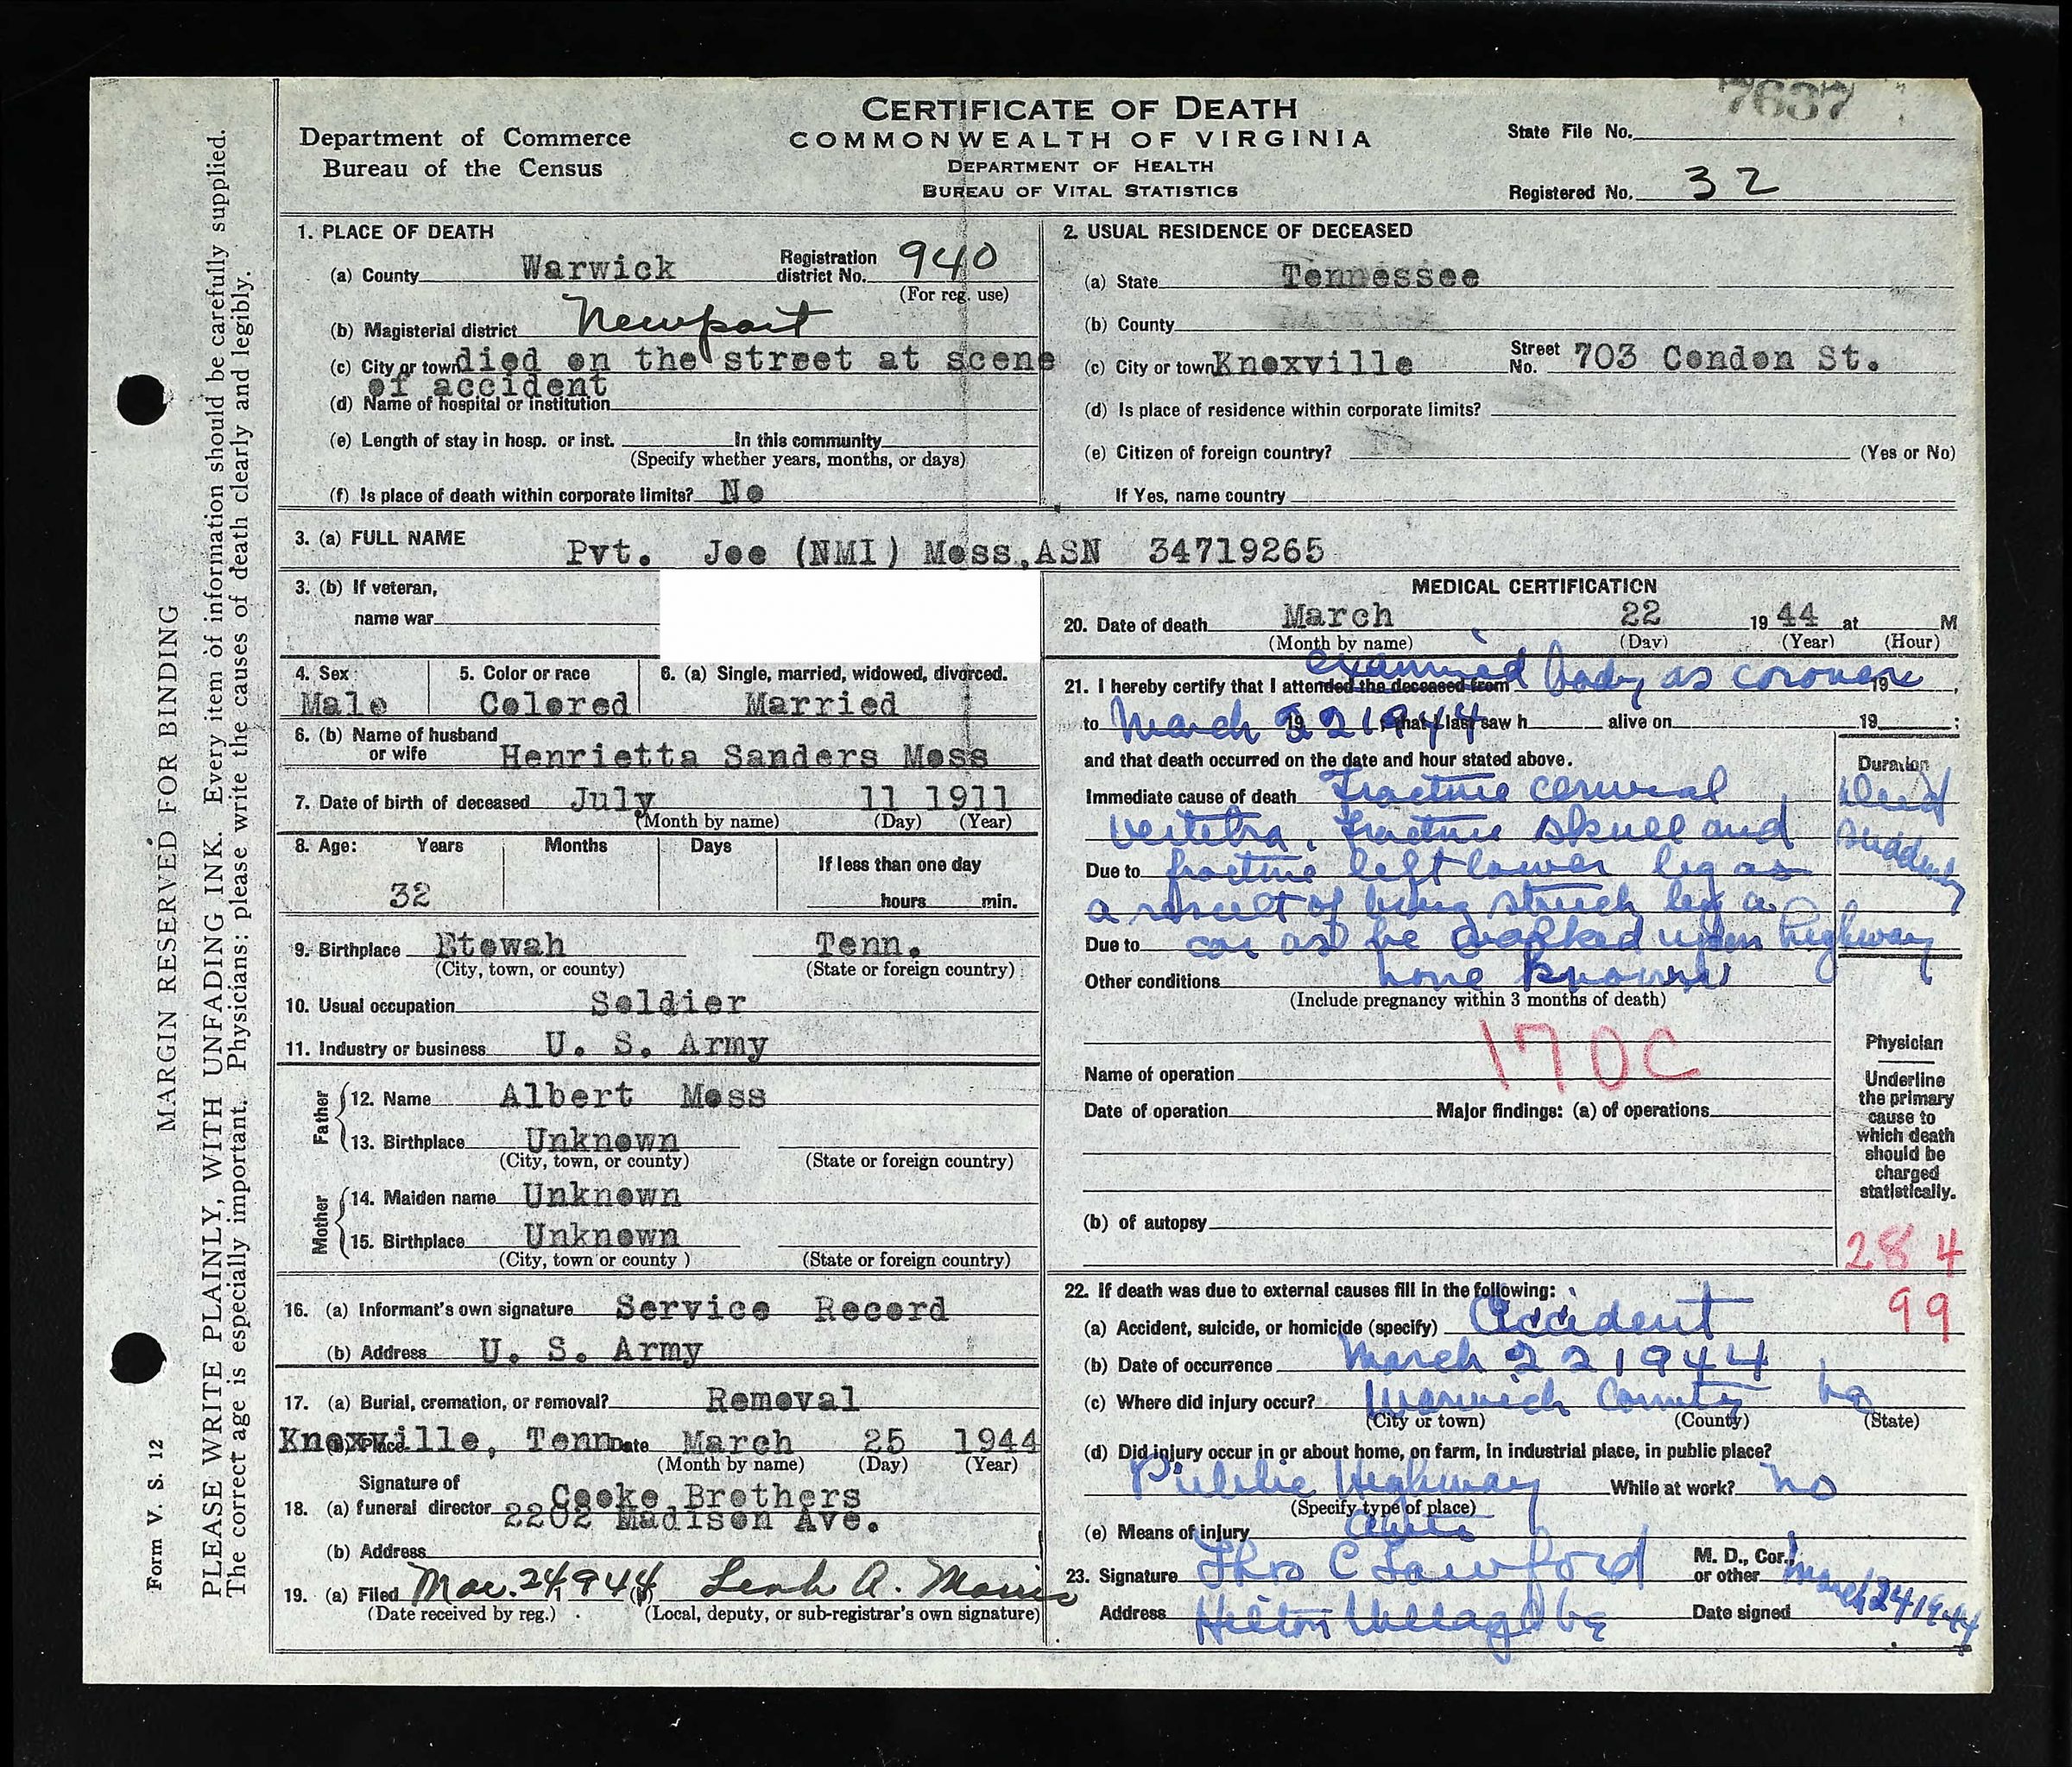 7637
CERTIFICATE OF DEATH
COMMONWEALTH OF VIRGINIA
DEPARTMENT OF HEALTH
BUREAU OF VITAL STATISTICS
Department of Commerce
Bureau of the Census
State File No.
Registered No. 32
MARGIN RESERVED FOR BINDING
PLEASE WRITE PLAINLY, WITH UNFADING INK. Every item of information should be carefully supplied.
The correct age is especially important. Physicians: please write the causes of death clearly and legibly.
Form V. S. 12
1. PLACE OF DEATH
(a) County Warwick Registration district No. 940
(For reg. use)
(b) Magisterial district Newport
(c) City or town died on the street at scene
of accident
(d) Name of hospital or institution
(e) Length of stay in hosp. or inst. In this community
(Specify whether years, months, or days)
(f) Is place of death within corporate limits? No
2. USUAL RESIDENCE OF DECEASED
(a) State Tennessee
(b) County
(c) City or town Knoxville Street No. 703 Condon St.
(d) Is place of residence within corporate limits?
(e) Citizen of foreign country? (Yes or No)
If Yes, name country
3. (a) FULL NAME Pvt. Joe (NMI) Moss, ASN 34719265
3. (b) If veteran,
name war
4. Sex Male
5. Color or race Colored
6. (a) Single, married, widowed, divorced. Married
6. (b) Name of husband or wife Henrietta Sanders Moss
7. Date of birth of deceased July 11 1911
(Month by name) (Day) (Year)
8. Age: Years Months Days If less than one day
32 hours min.
9. Birthplace Etowah Tenn.
(City, town, or county) (State or foreign country)
10. Usual occupation Soldier
11. Industry or business U. S. Army
Father
12. Name Albert Moss
13. Birthplace Unknown
(City, town, or county) (State or foreign country)
Mother
14. Maiden name Unknown
15. Birthplace Unknown
(City, town or county ) (State or foreign country)
16. (a) Informant's own signature Service Record
(b) Address U. S. Army
17. (a) Burial, cremation, or removal? Removal
(b) Place Knoxville, Tenn Date March 25 1944
(Month by name) (Day) (Year)
Signature of
18. (a) funeral director Cooke Brothers
2202 Madison Ave.
(b) Address
19. (a) Filed Mar. 24 1944 (b) Leah A. Morris
(Date received by reg.) (Local, deputy, or sub-registrar's own signature)
MEDICAL CERTIFICATION
20. Date of death March 22 1944 at M
(Month by name) (Day) (Year) (Hour)
21. I hereby certify that I attended the deceased from examined body as coroner 19 ,
to March 22 1944 19 , that I last saw h alive on 19 :
and that death occurred on the date and hour stated above.
Duration
Immediate cause of death Fracture cervical
vertebra, fracture skull and
Died
suddenly
Due to fracture left lower leg as
a result of being struck by a
Due to car as he walked upon highway
Other conditions none known
(Include pregnancy within 3 months of death)
170C
Name of operation
Date of operation Major findings: (a) of operations
(b) of autopsy
Physician
Underline
the primary
cause to
which death
should be
charged
statistically.
284
99
22. If death was due to external causes fill in the following:
(a) Accident, suicide, or homicide (specify) Accident
(b) Date of occurrence March 22 1944
(c) Where did injury occur? Warwick County Va
(City or town) (County) (State)
(d) Did injury occur in or about home, on farm, in industrial place, in public place?
Public Highway While at work? no
(Specify type of place)
(e) Means of injury Auto
23. Signature Thos C Lawford M. D., Cor. or other
Address Hilton Village Va Date signed March 24 1944